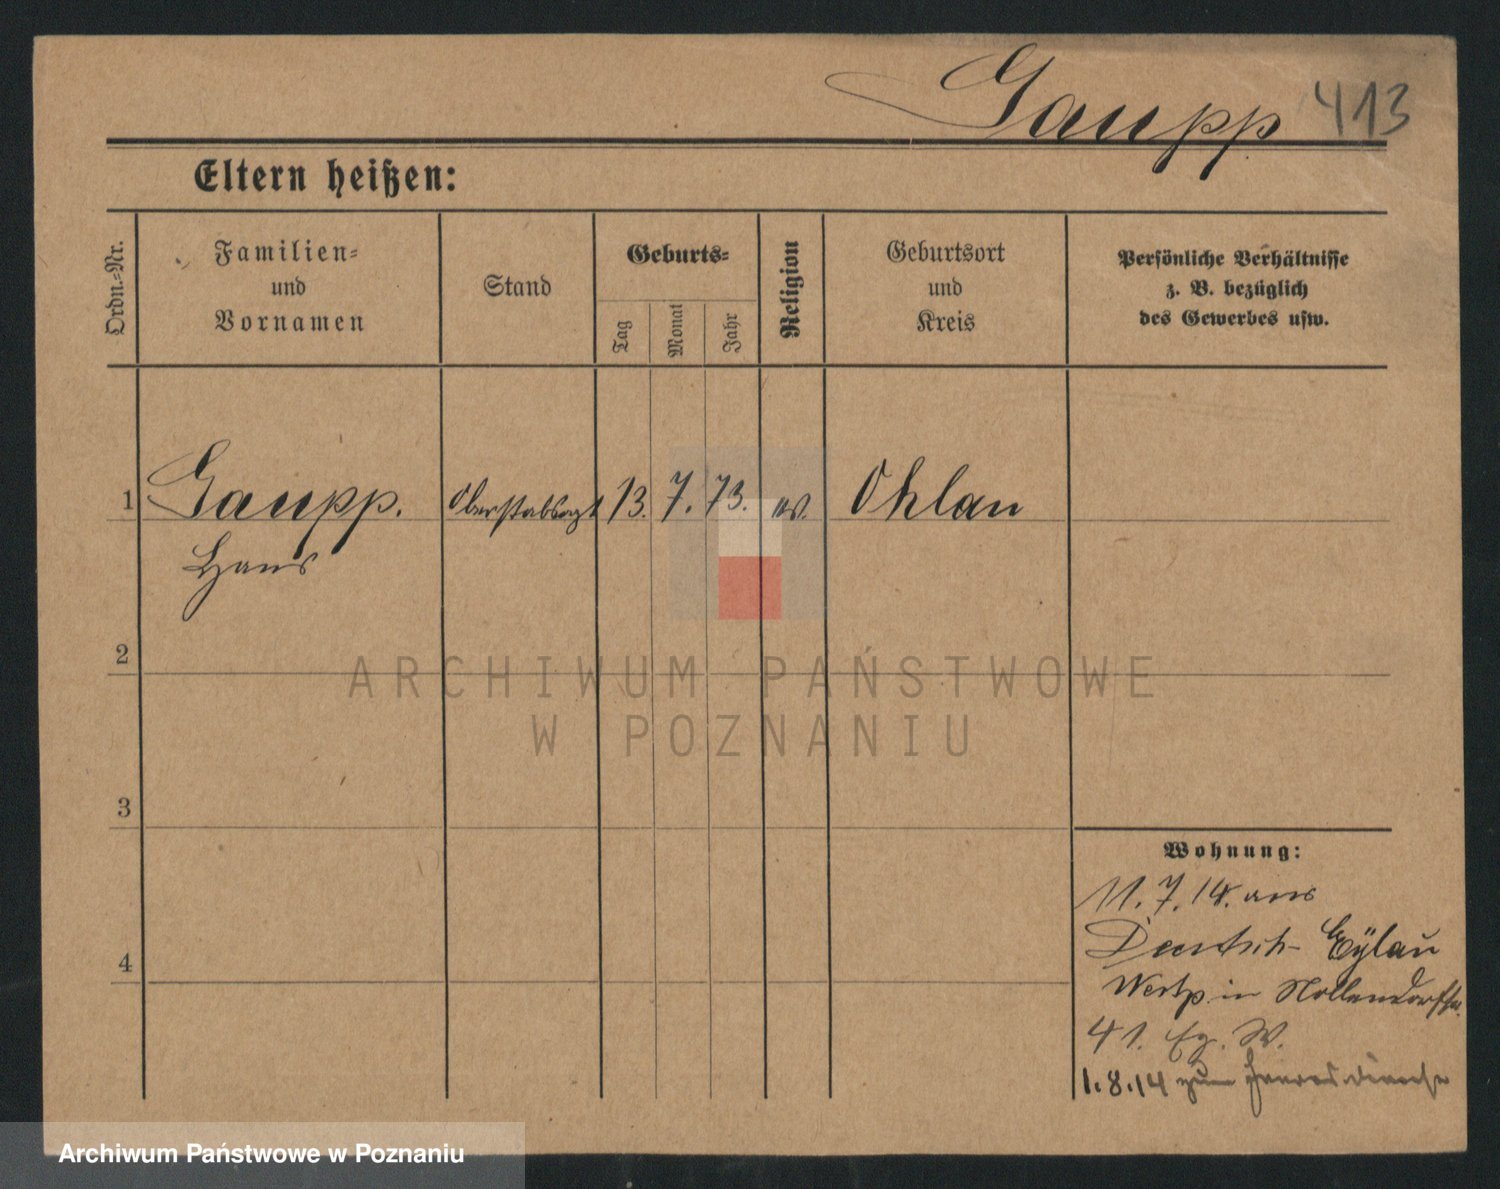 Gaupp 413
Eltern heißen:
Ordn.-Nr.
Familien-
und
Vornamen
Stand
Geburts-
Tag
Monat
Jahr
Religion
Geburtsort
und
Kreis
Persönliche Verhältnisse
z. B. bezüglich
des Gewerbes usw.
1 Gaupp. Oberstabsarzt 13. 7. 73. ev. Ohlau
Hans
2
3
4
Wohnung:
11. 7. 14. aus
Deutsch-Eylau
Westpr. in Nollendorfstr.
41. W.
1.8.14 zum
ARCHIWUM PAŃSTWOWE
W POZNANIU
Archiwum Państwowe w Poznaniu